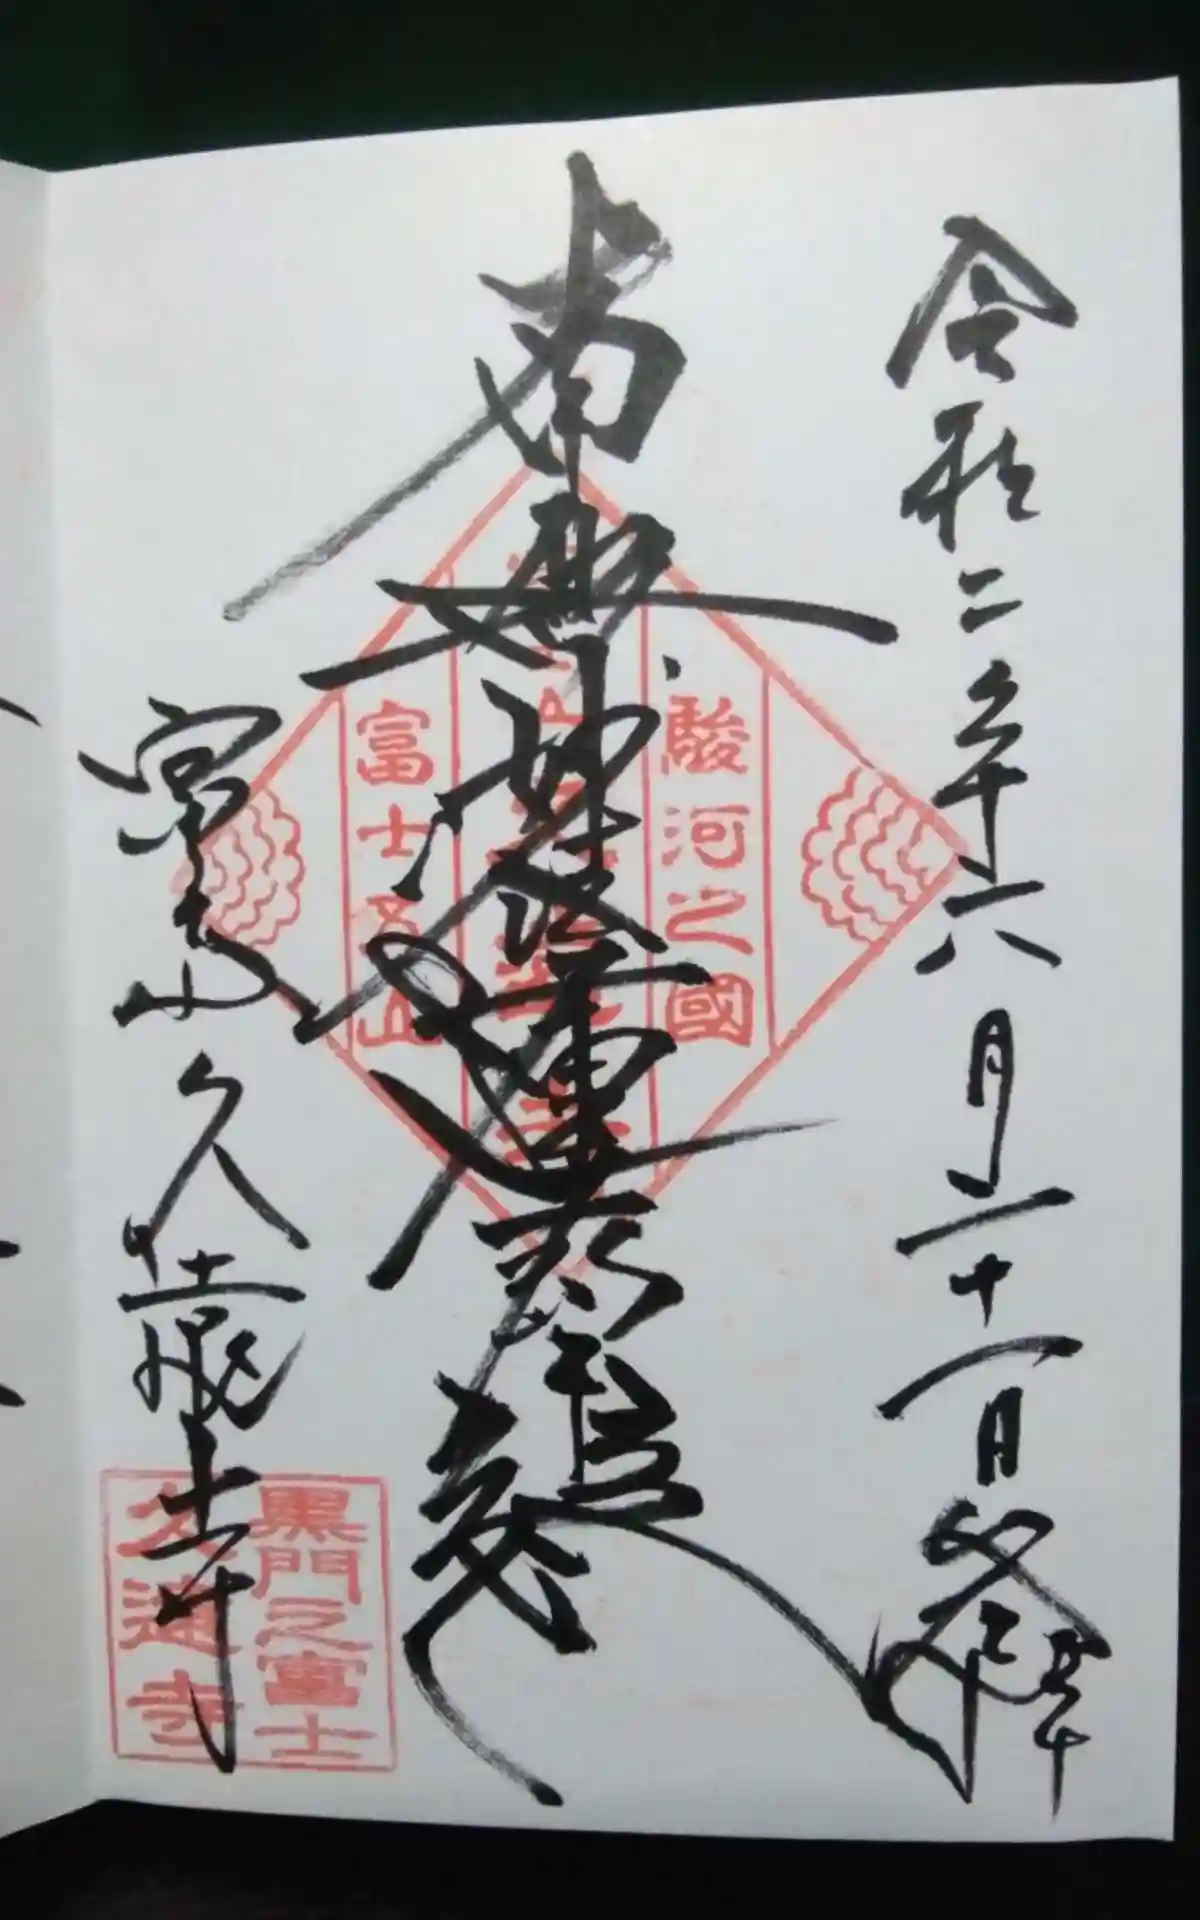 令和二年六月二十一日
南無妙法蓮華経
富士山久遠寺
駿河之國
富士五山
黒門之富士
久遠寺